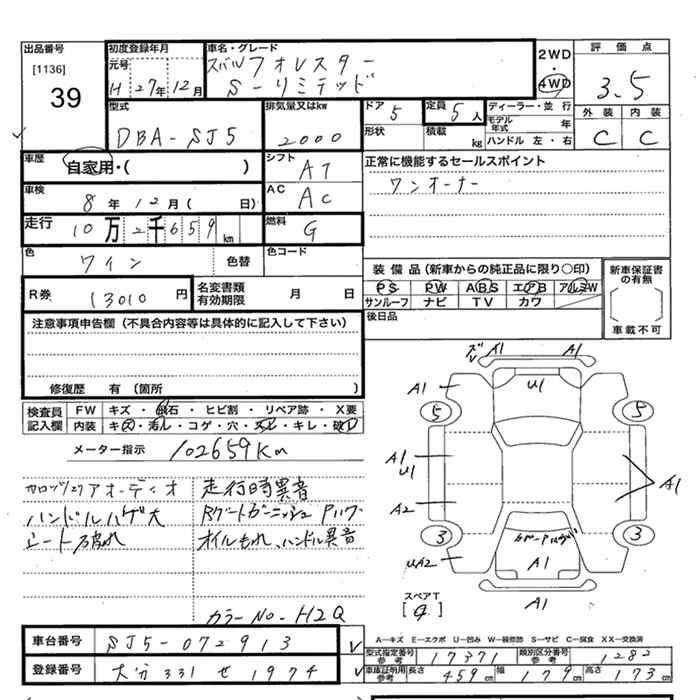 出品番号 初度登録年月 車名・グレード 2WD・4WD 評価点
[1136] 元号 スバル フォレスター
39 H 27年 12月 S-リミテッド 3.5
型式 排気量又はkw ドア 5 定員 5人 ディーラー・並行 外装 内装
DBA-SJ5 2000 形状 積載 kg モデル年式 年 C C
ハンドル 左・右
車歴 自家用・( ) シフト AT 正常に機能するセールスポイント
車検 8年 12月 ( 日) AC AC ワンオーナー
走行 10万2千659km 燃料 G
色 ワイン 色替 色コード
装備品(新車からの純正品に限り〇印) 新車保証書の有無
R券 13010円 名変書類有効期限 月 日 PS PW ABS エアB アルミW
サンルーフ ナビ TV カワ
注意事項申告欄(不具合内容等は具体的に記入して下さい) 後日品 車載不可
修復歴 有(箇所 )
検査員記入欄 FW キズ・飛石・ヒビ割・リペア跡・X要
内装 キズ・汚レ・コゲ・穴・スレ・キレ・破レ
メーター指示 102659Km
カロッツェリアオーディオ 走行時異音
ハンドルハゲ大 Rゲートガーニッシュ Pハゲ
シート破れ オイルもれ、ハンドル異音
カラーNo-H2Q
ズレ A1 A1
A1 U1
5 5
A1 U1 A1
A2
3 3
UA2 A1
スペアT A1
A-キズ E-エクボ U-凹み W-補修跡 S-サビ C-腐食 XX-交換済
車台番号 SJ5-072913
型式指定番号参考 17371 類別区分番号参考 1282
登録番号 大分 331 せ 1974
車庫証明用参考 長さ 459cm 幅 179cm 高さ 173cm